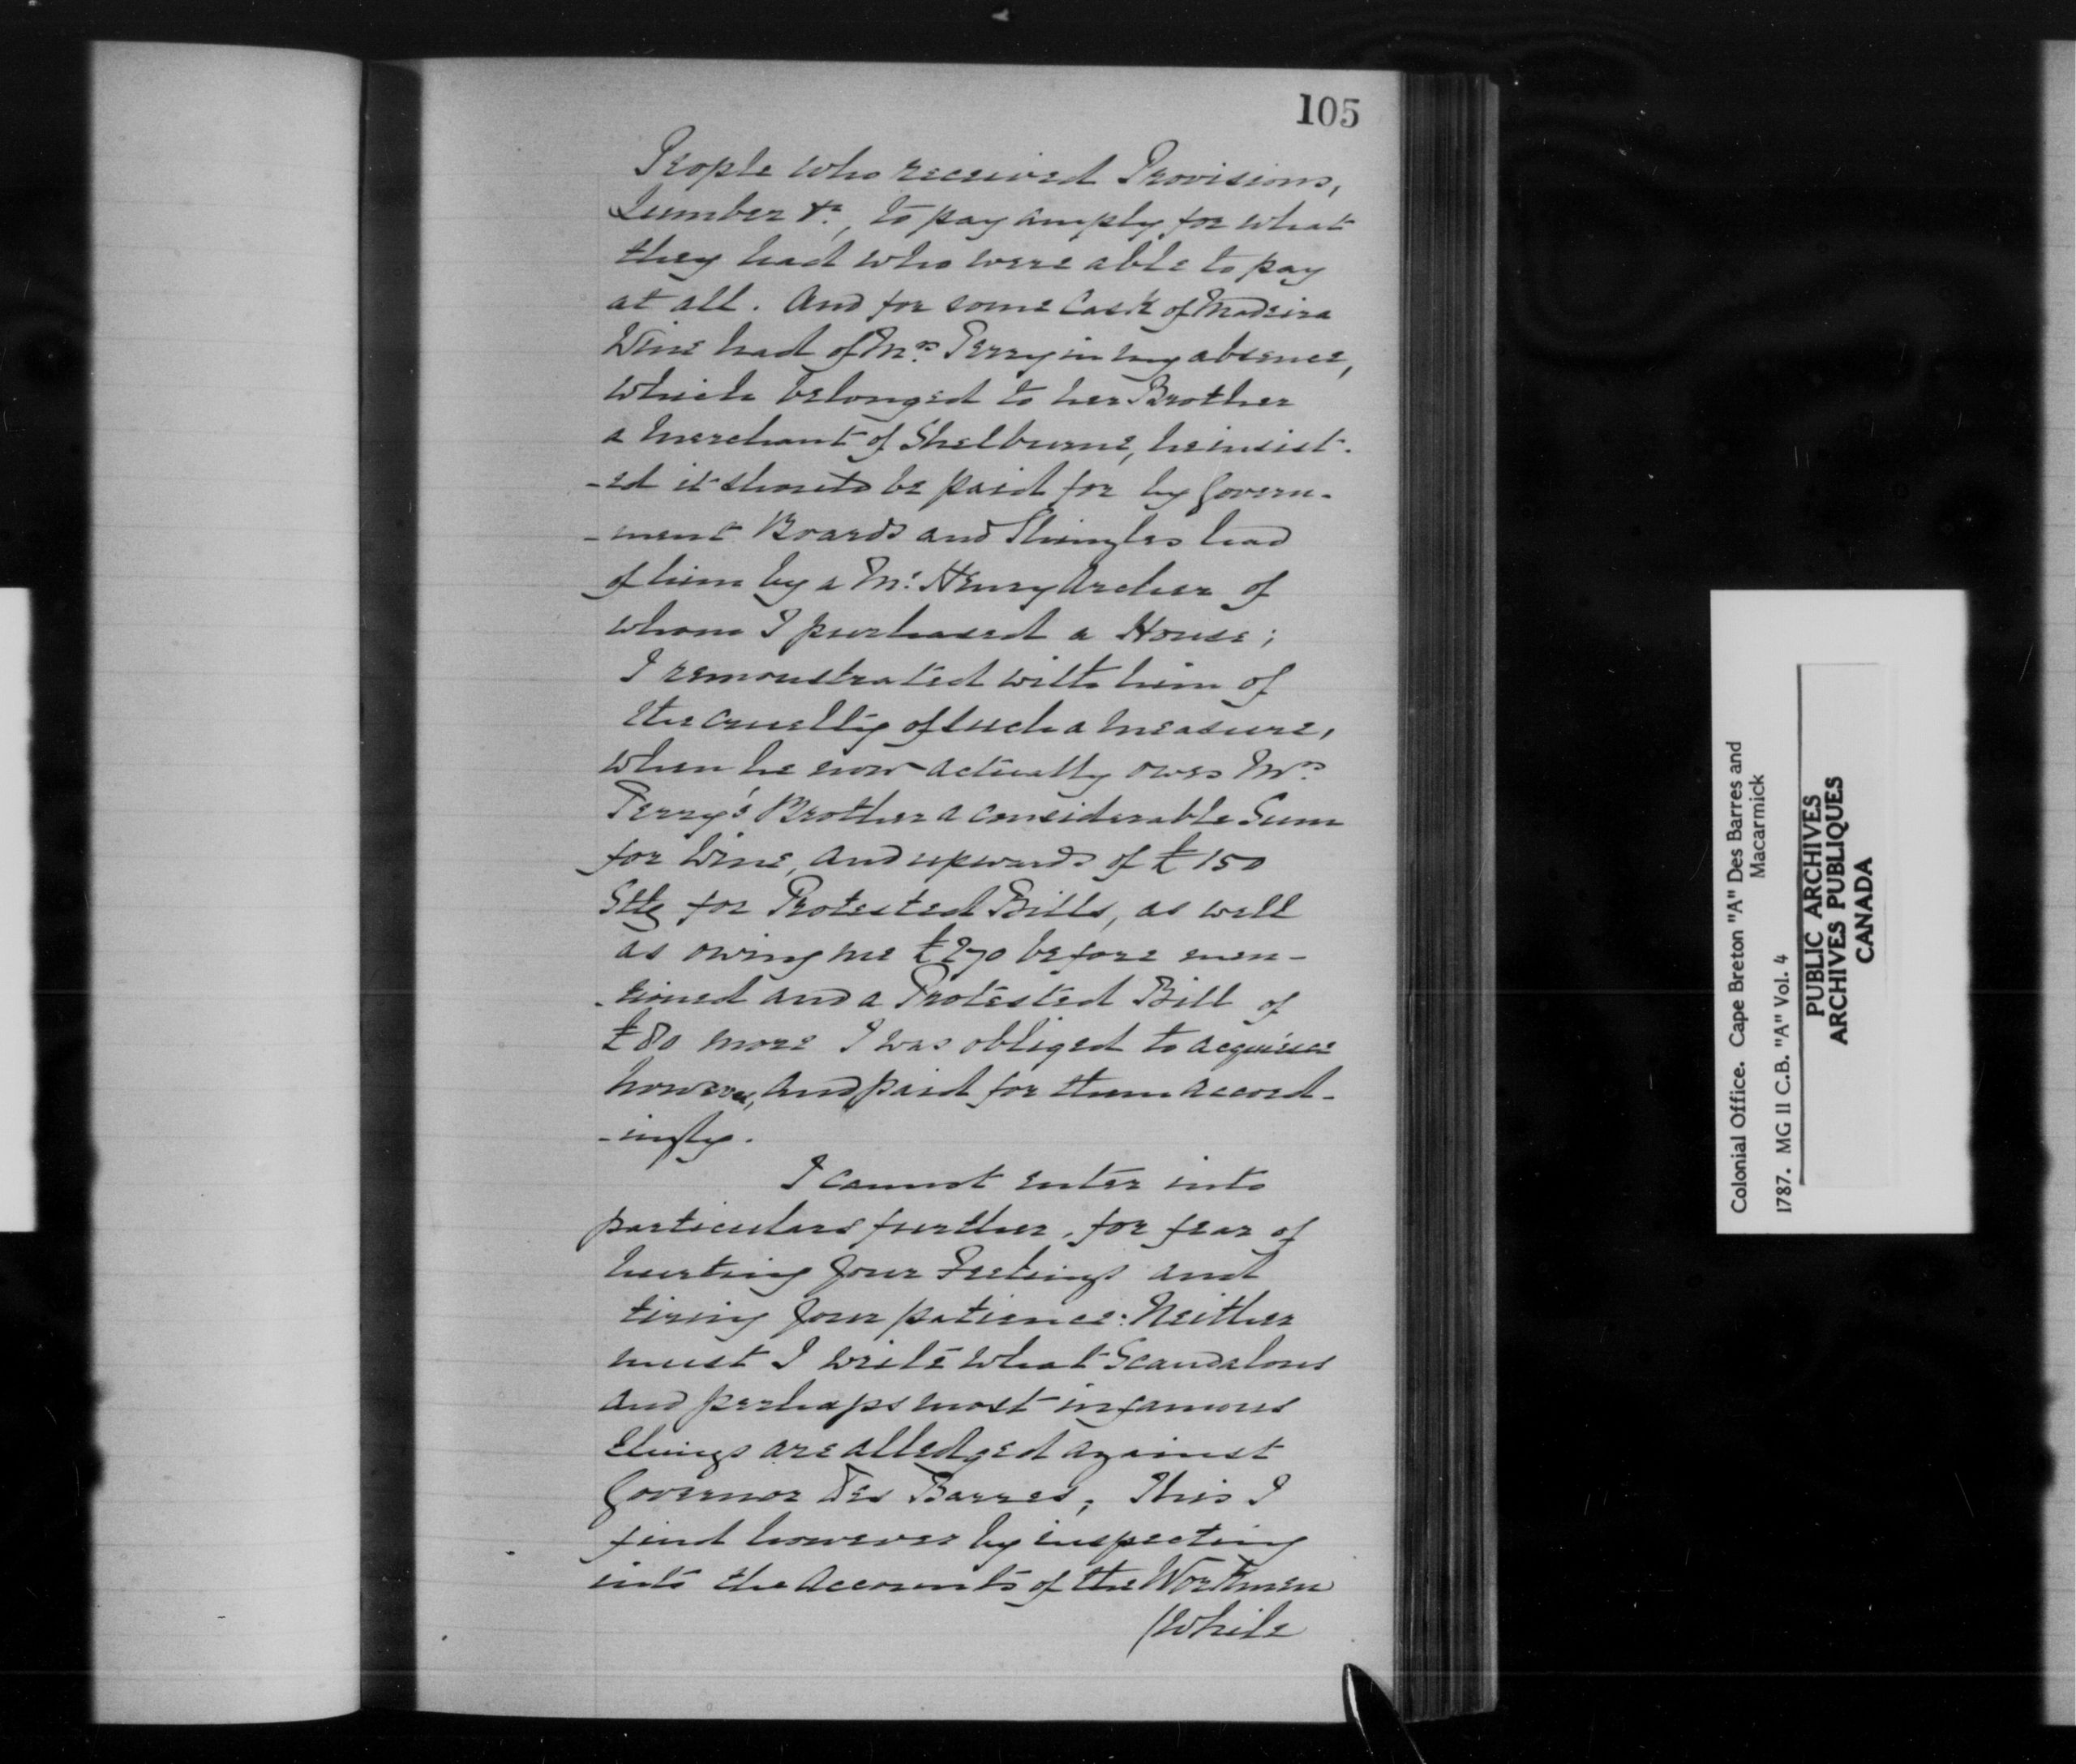 105
People who received Provisions,
Lumber &c., to pay amply for what
they had who were able to pay
at all. And for some Cask of Madeira
Wine had of Mrs. Perry in my absence,
which belonged to her Brother
a Merchant of Shelburne, he insist-
-ed it should be paid for by Govern-
-ment Boards and Shingles had
of him by a Mr. Henry Archer of
whom I purchased a House;
I remonstrated with him of
the cruelty of such a measure,
when he now actually owes Mrs
Perry's Brother a considerable Sum
for Wine, and upwards of £150
Stlg for Protested Bills, as well
as owing me £270 before men-
-tioned and a Protested Bill of
£80 more I was obliged to acquiesce
however, and paid for them accord-
-ingly.
I cannot enter into
particulars further, for fear of
hurting your Feelings and
tiring your patience: Neither
must I write what Scandalous
and perhaps most infamous
things are alledged against
Governor Des Barres; This I
find however by inspecting
into the Accounts of the Workmen
/While
Colonial Office. Cape Breton "A" Des Barres and
Macarmick
1787. MG 11 C.B. "A" Vol. 4
PUBLIC ARCHIVES
ARCHIVES PUBLIQUES
CANADA